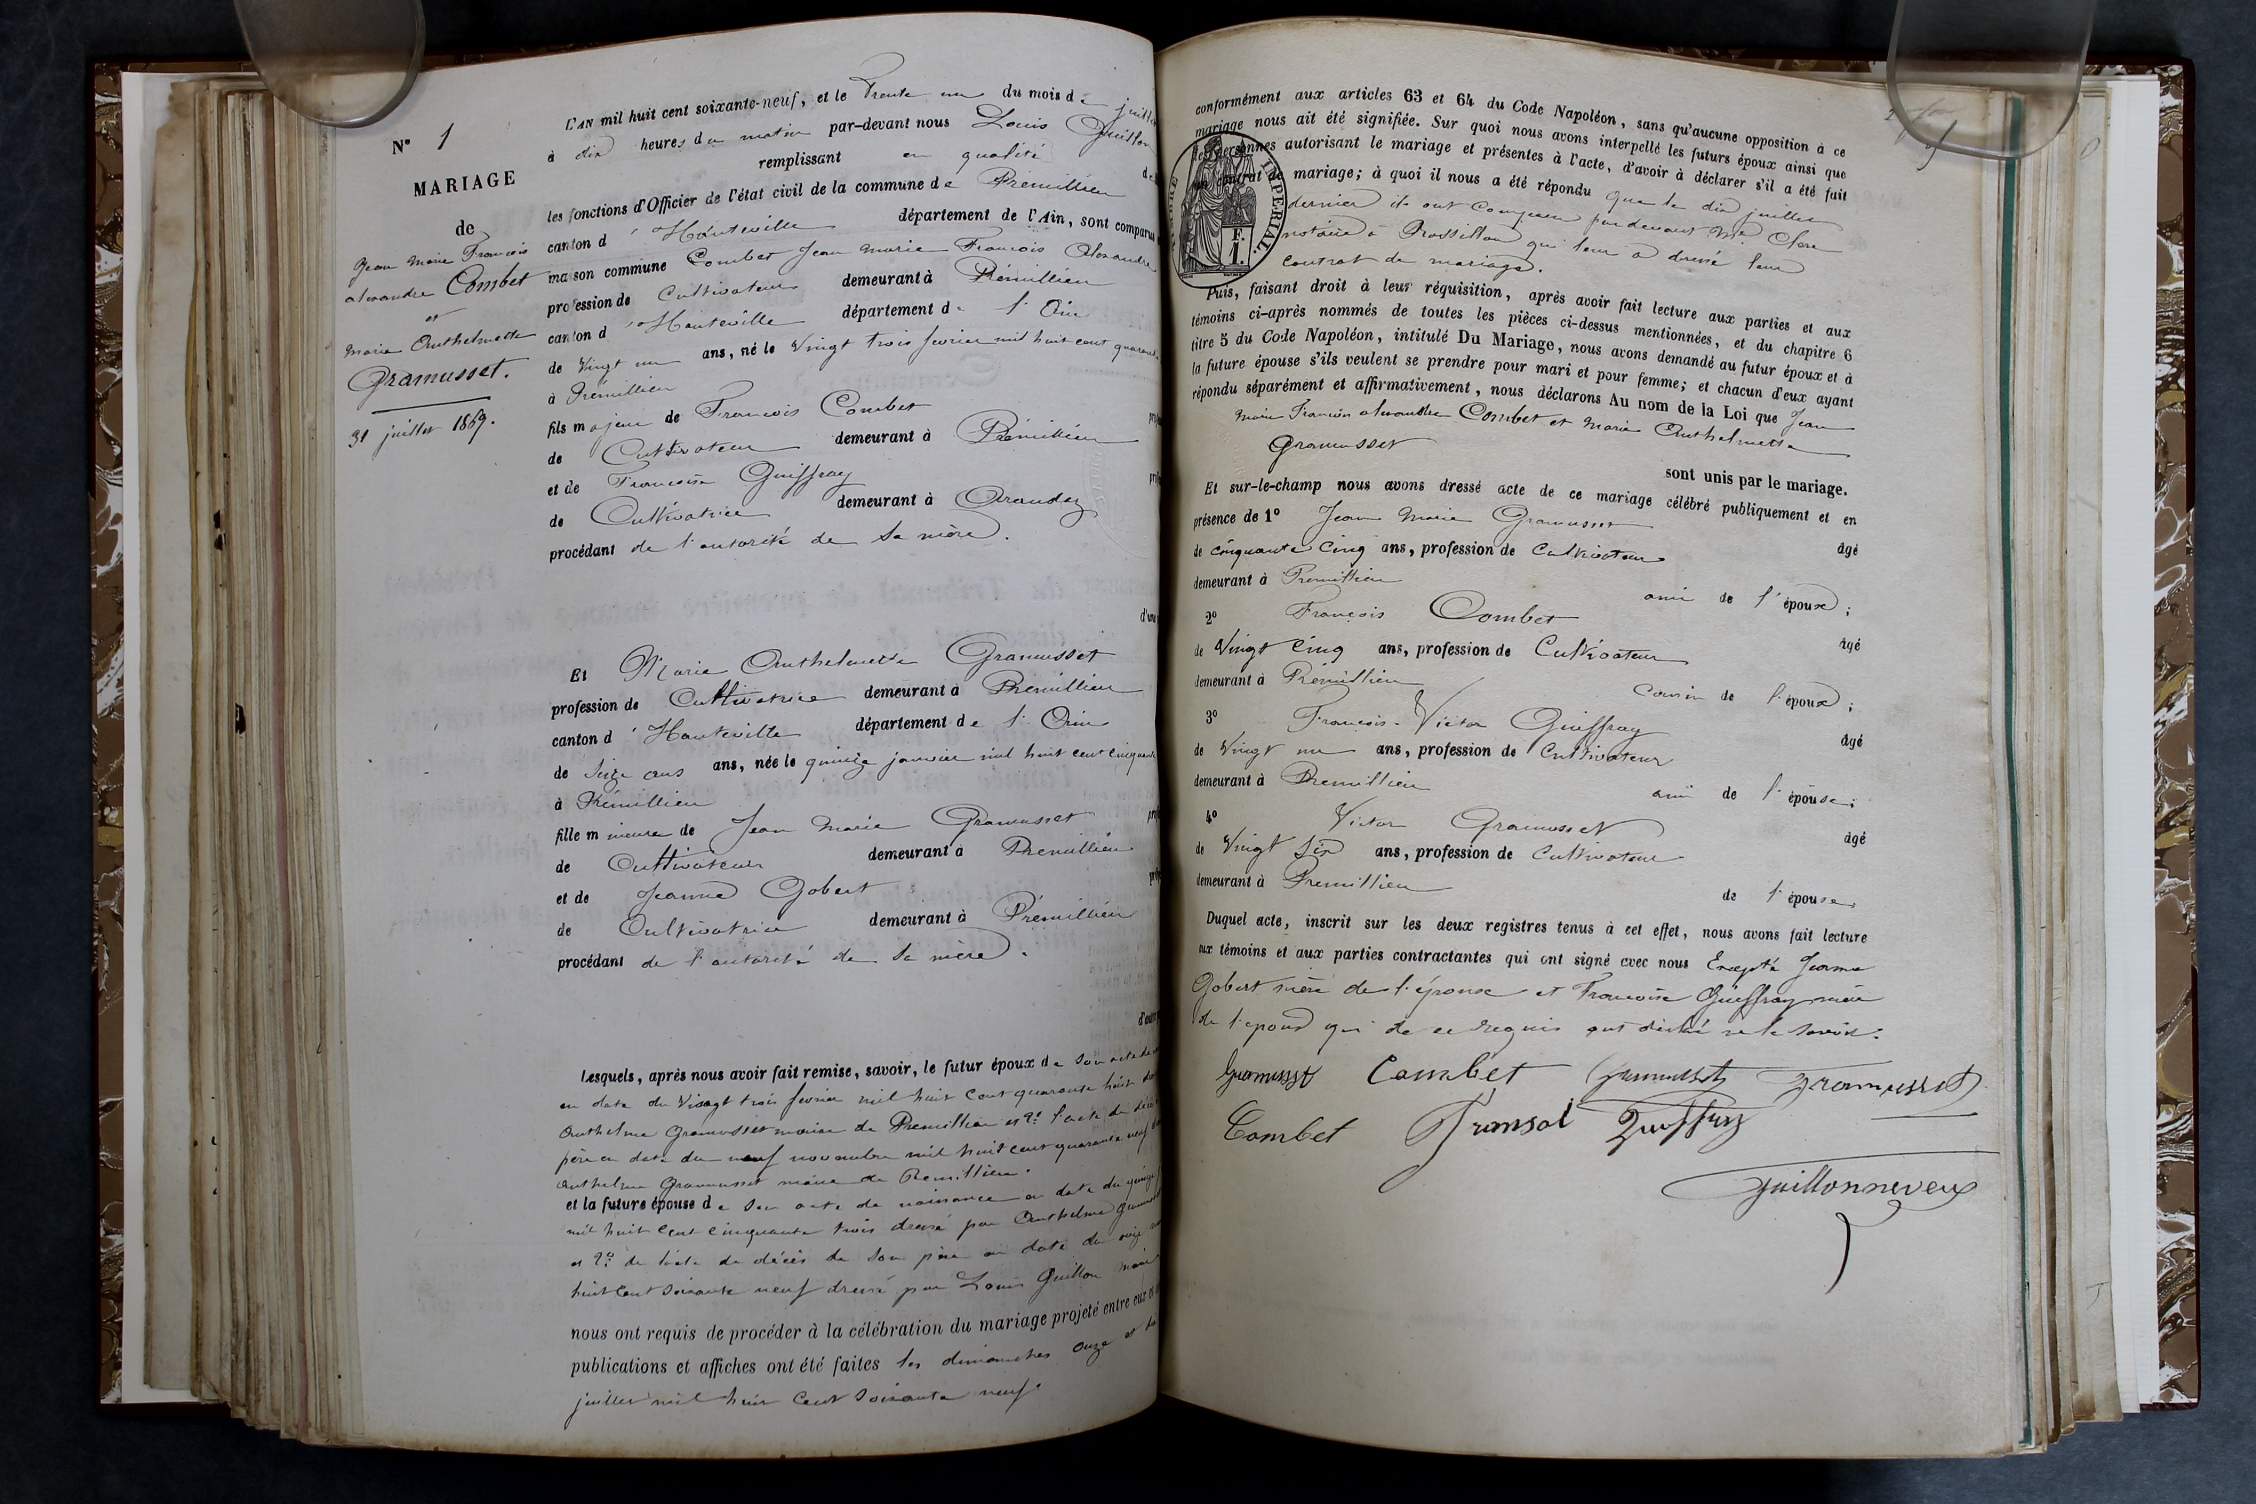 N° 1
MARIAGE
de
Jean Marie François
alexandre Combet
et
Marie Anthelmette
Gramusset.
31 juillet 1869.
L'AN mil huit cent soixante-neuf, et le Trente un du mois de juillet
à dix heures du matin par-devant nous Louis Guillon
remplissant en qualité de
les fonctions d'Officier de l'état civil de la commune de Prémillieu
canton d'Hauteville département de l'Ain, sont comparus
maison commune Combet Jean marie François Alexandre
profession de Cultivateur demeurant à Prémillieu
canton d'Hauteville département de l'Ain
de Vingt un ans, né le Vingt trois fevrier mil huit cent quarante
à Prémillieu
fils majeur de François Combet
de Cultivateur demeurant à Prémillieu
et de Françoise Guiffray
de Cultivatrice demeurant à Arandas
procédant de l'autorité de sa mère.
d'une
Et Marie Anthelmette Gramusset
profession de Cultivatrice demeurant à Prémillieu
canton d'Hauteville département de l'Ain
de Seize ans ans, née le quinze janvier mil huit cent cinquante
à Prémillieu
fille mineure de Jean Marie Gramusset
de Cultivateur demeurant à Prémillieu
et de Jeanne Gobert
de Cultivatrice demeurant à Prémillieu
procédant de l'autorité de sa mère.
Lesquels, après nous avoir fait remise, savoir, le futur époux de son acte de
en date du Vingt trois fevrier mil huit cent quarante huit
Anthelme Gramusset maire de Premillieu et 2° l'acte de décès
père en date du neuf novembre mil huit cent quarante neuf
Anthelme Gramusset maire de Premillieu.
et la future épouse de son acte de naissance en date du quinze
mil huit cent cinquante trois dressé par Anthelme Gramusset
et 2° de l'acte de décès de son père en date du onze
huit cent soixante neuf dressé par Louis Guillon maire
nous ont requis de procéder à la célébration du mariage projeté entre eux et
publications et affiches ont été faites les dimanches onze et
juillet mil huit cent soixante neuf.
conformément aux articles 63 et 64 du Code Napoléon, sans qu'aucune opposition à ce
mariage nous ait été signifiée. Sur quoi nous avons interpellé les futurs époux ainsi que
les personnes autorisant le mariage et présentes à l'acte, d'avoir à déclarer s'il a été fait
un contrat de mariage; à quoi il nous a été répondu que le dix juillet
dernier ils ont comparu par devant Me Clerc
notaire à Rossillon qui leur a dressé leur
contrat de mariage.
IMPERIAL.
F.
1.
Puis, faisant droit à leur réquisition, après avoir fait lecture aux parties et aux
témoins ci-après nommés de toutes les pièces ci-dessus mentionnées, et du chapitre 6
titre 5 du Code Napoléon, intitulé Du Mariage, nous avons demandé au futur époux et à
la future épouse s'ils veulent se prendre pour mari et pour femme; et chacun d'eux ayant
répondu séparément et affirmativement, nous déclarons Au nom de la Loi que Jean
Marie François alexandre Combet et Marie Anthelmette
Gramusset
sont unis par le mariage.
Et sur-le-champ nous avons dressé acte de ce mariage célébré publiquement et en
présence de 1° Jean Marie Gramusset âgé
de cinquante cinq ans, profession de Cultivateur
demeurant à Premillieu ami de l'époux;
2° François Combet âgé
de Vingt cinq ans, profession de Cultivateur
demeurant à Prémillieu Cousin de l'époux;
3° François-Victor Guiffray âgé
de Vingt un ans, profession de Cultivateur
demeurant à Premillieu ami de l'épouse;
4° Victor Gramusset âgé
de Vingt six ans, profession de Cultivateur
demeurant à Premillieu de l'épouse.
Duquel acte, inscrit sur les deux registres tenus à cet effet, nous avons fait lecture
aux témoins et aux parties contractantes qui ont signé avec nous Excepté Jeanne
Gobert mère de l'épouse et Françoise Guiffray mère
de l'époux qui de ce requis ont déclaré ne le savoir.
Gramusset Combet Gramusset Gramusset
Combet Guiffray
Guillonneveu